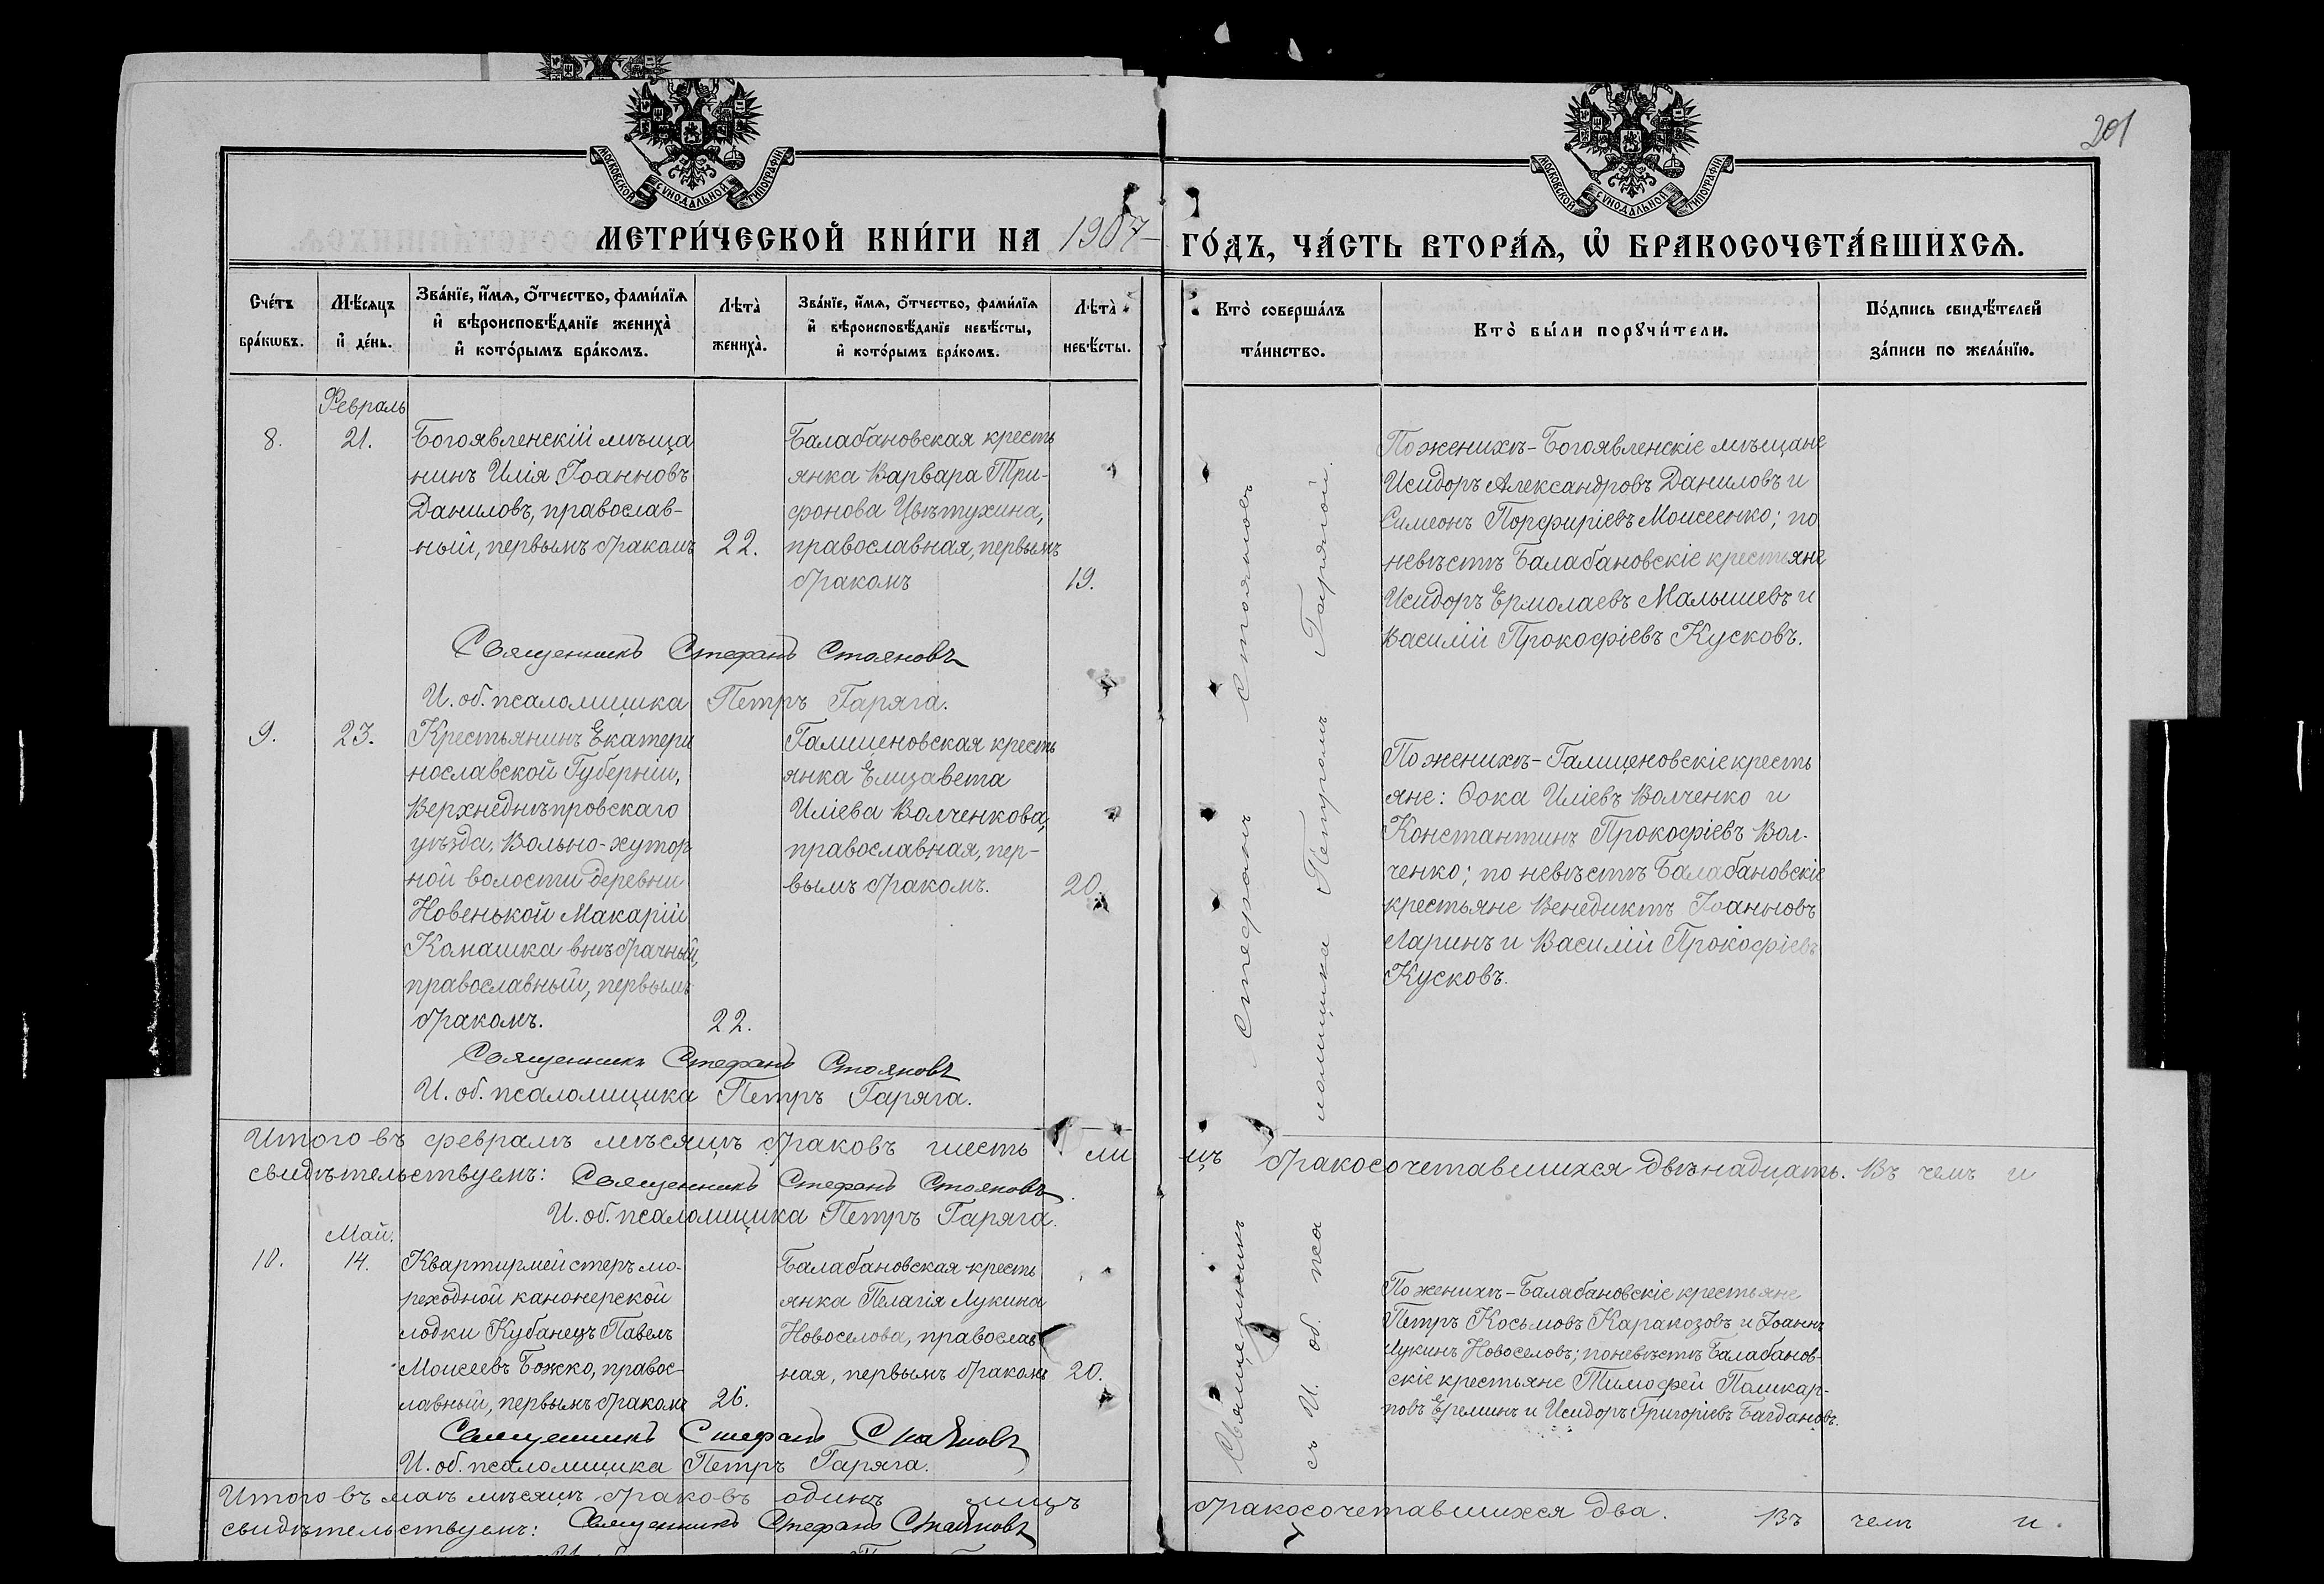 201
МОСКОВСКОЙ СУНОДАЛЬНОЙ ТИПОГРАФІИ
МОСКОВСКОЙ СУНОДАЛЬНОЙ ТИПОГРАФІИ
МЕТРИ́ЧЕСКОЙ КНИ́ГИ НА 1907 ГО́ДЪ, ЧА́СТЬ ВТОРА́Я, Ѽ БРАКОСОЧЕТА́ВШИХСѦ.
Сче́тъ
бра́кѡвъ.
Мѣ́сяцъ
и҆ де́нь.
Зва́нїе, и҆́мѧ, ѻ҆́тчество, фами́лїѧ
и҆ вѣроисповѣ́данїе жениха̀
и҆ кото́рымъ бра́комъ.
Лѣта̀
жениха̀.
Зва́нїе, и҆́мѧ, ѻ҆́тчество, фами́лїѧ
и҆ вѣроисповѣ́данїе невѣ́сты,
и҆ кото́рымъ бра́комъ.
Лѣта̀
невѣ́сты.
Кто̀ соверша́лъ
та́инство.
Кто̀ бы́ли порꙋчи́тели.
По́дпись свидѣ́телей
за́писи по жела́нїю.
Февраль
8.
21.
Богоявленскій мѣща
нинъ Илія Іоанновъ
Даниловъ, православ-
ный, первымъ бракомъ
22.
Балабановская кресть
янка Варвара Три-
фонова Цвѣтухина,
православная, первымъ
бракомъ
19.
По женихѣ - Богоявленскіе мѣщане
Исидоръ Александровъ Даниловъ и
Симеонъ Порфиріевъ Моисеенко; по
невѣстѣ Балабановскіе крестьяне
Исидоръ Ермолаевъ Малышевъ и
Василій Прокофіевъ Кусковъ.
Священникъ Стефанъ Стояновъ
И. об. псаломщика Петръ Гаряга.
9.
23.
Крестьянинъ Екатери
нославской Губерніи,
Верхнеднѣпровскаго
уѣзда, Вольно-хутор
ной волости деревни
Новенькой Макарій
Комашка внѣбрачный,
православный, первымъ
бракомъ.
22.
Галициновская кресть
янка Елизавета
Иліева Волченкова,
православная, пер-
вымъ бракомъ.
20.
По женихѣ - Галициновскіе кресть
яне: Фока Иліевъ Волченко и
Константинъ Прокофіевъ Вол-
ченко; по невѣстѣ Балабановскіе
крестьяне Венедиктъ Іоанновъ
Ларинъ и Василій Прокофіевъ
Кусковъ.
Священникъ Стефанъ Стояновъ
И. об. псаломщика Петръ Гаряга.
Итого въ февралѣ мѣсяцѣ браковъ шесть ли цъ бракосочетавшихся двѣнадцать. Въ чемъ и
свидѣтельствуемъ: Священникъ Стефанъ Стояновъ.
И. об. псаломщика Петръ Гаряга.
Май.
10.
14.
Квартирмейстеръ мо-
реходной канонерской
лодки Кубанецъ Павелъ
Моисеевъ Божко, правос-
лавный, первымъ бракомъ
26.
Балабановская кресть
янка Пелагія Лукина
Новоселова, православ
ная, первымъ бракомъ
20.
По женихѣ - Балабановскіе крестьяне
Петръ Косьмовъ Каракозовъ и Іоаннъ
Лукинъ Новоселовъ; по невѣстѣ Балабанов-
скіе крестьяне Тимофей
Ереминъ и Исидоръ Григоріевъ Багдановъ.
Священникъ Стефанъ Стояновъ
И. об. псаломщика Петръ Гаряга.
Священникъ Стефанъ Стояновъ
съ И. об. псаломщика Петромъ Гарягой.
Итого въ маѣ мѣсяцѣ браковъ одинъ лицъ бракосочетавшихся два. Въ чемъ и
свидѣтельствуемъ: Священникъ Стефанъ Стояновъ